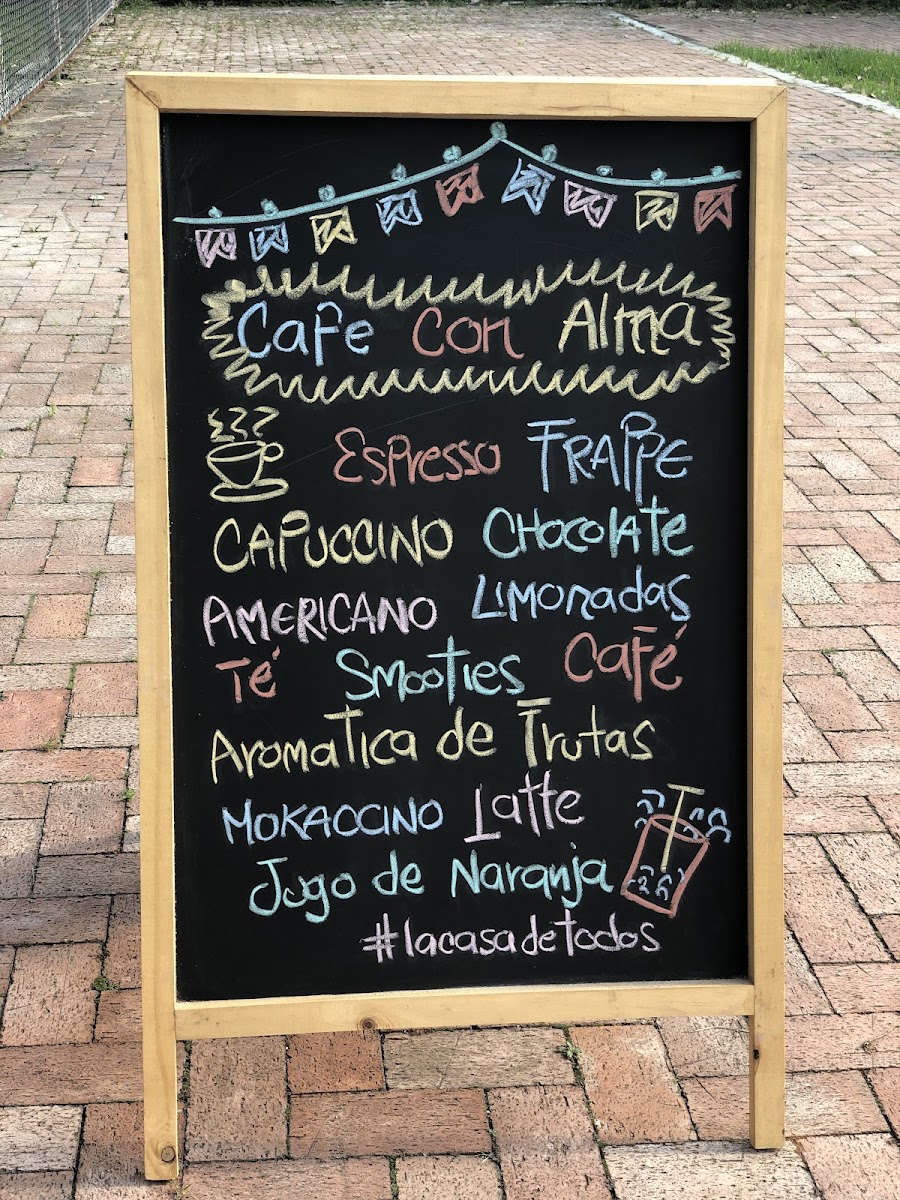 Cafe con Alma
Espresso FRAPPE
CAPUCCINO CHOCOLATE
AMERICANO LIMONADAS
Té Smooties Café
Aromatica de Frutas
MOKACCINO Latte
Jugo de Naranja
#lacasadetodos